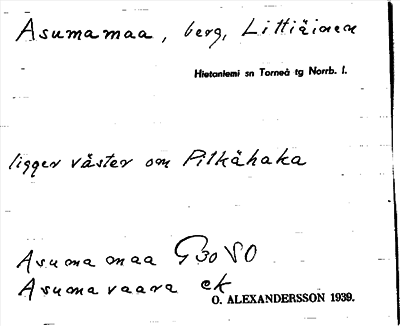 Asumamaa, berg, Littiäinen
Hietaniemi sn Torneå tg Norrb. l.
ligger väster om Pitkähaka
Asumamaa G30 SO
Asumavaara ek
O. ALEXANDERSSON 1939.